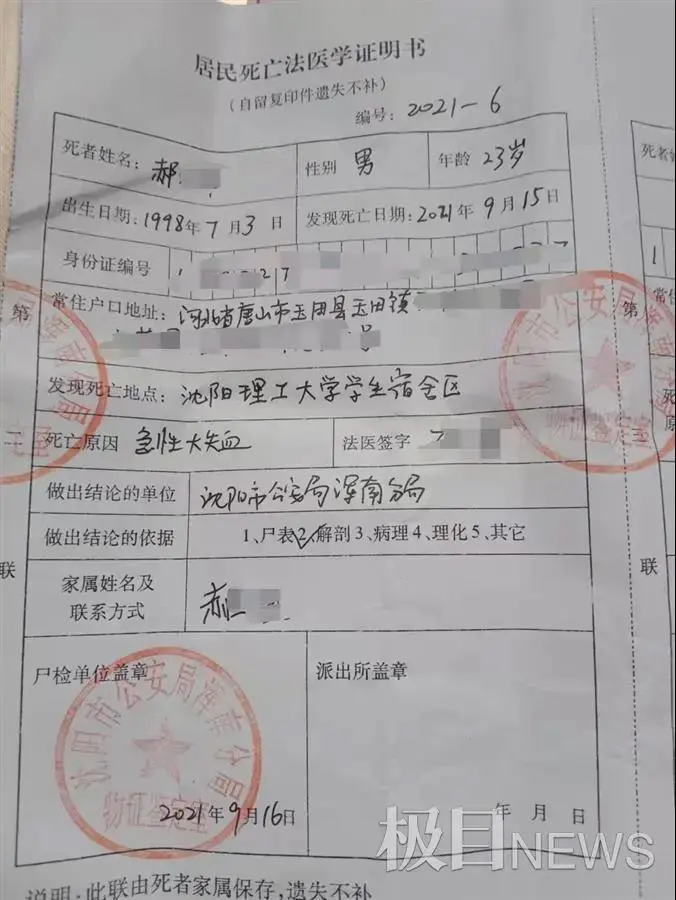 居民死亡法医学证明书
(自留复印件遗失不补)
编号: 2021-6
死者姓名: 郝 性别 男 年龄 23岁
出生日期: 1998年7月3日 发现死亡日期: 2021年9月15日
身份证编号 1 2 7 7
常住户口地址: 河北省唐山市玉田县玉田镇
号
发现死亡地点: 沈阳理工大学学生宿舍区
死亡原因 急性大失血 法医签字
做出结论的单位 沈阳市公安局浑南分局
做出结论的依据 1、尸表2、解剖3、病理4、理化5、其它
家属姓名及
联系方式
郝
尸检单位盖章 派出所盖章
沈阳市公安局浑南分局
物证鉴定室
2021年9月16日 年 月 日
说明: 此联由死者家属保存,遗失不补
第
二
联
沈阳市公安局浑南分局
物证鉴定室
第
三
联
死者
1
常住
极目NEWS